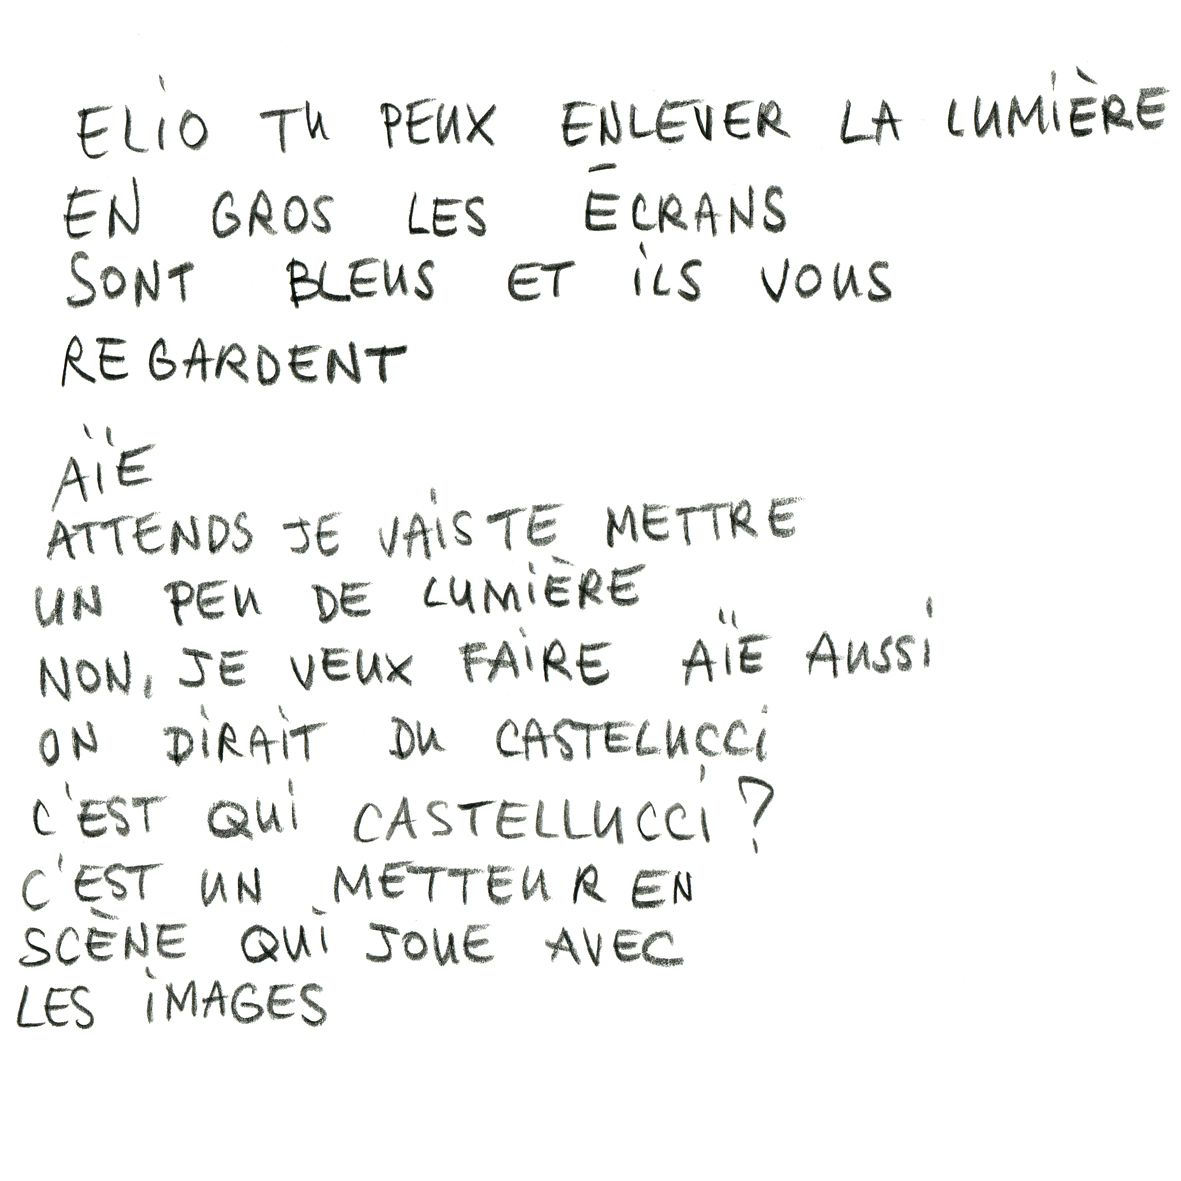 ELiO TU PEUX ENLEVER LA LUMiÈRE
EN GROS LES ÉCRANS
SONT BLEUS ET iLS VOUS
REGARDENT
AÏE
ATTENDS JE VAiS TE METTRE
UN PEU DE LUMiÈRE
NON, JE VEUX FAiRE AÏE AUSSi
ON DiRAiT DU CASTELUCCi
C'EST QUi CASTELLUCCi ?
C'EST UN METTEUR EN
SCÈNE QUi JOUE AVEC
LES iMAGES